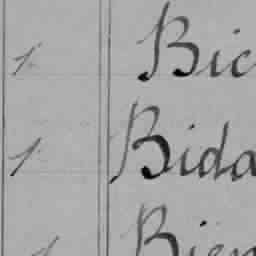 1. Bic
1 Bida
1 Bien